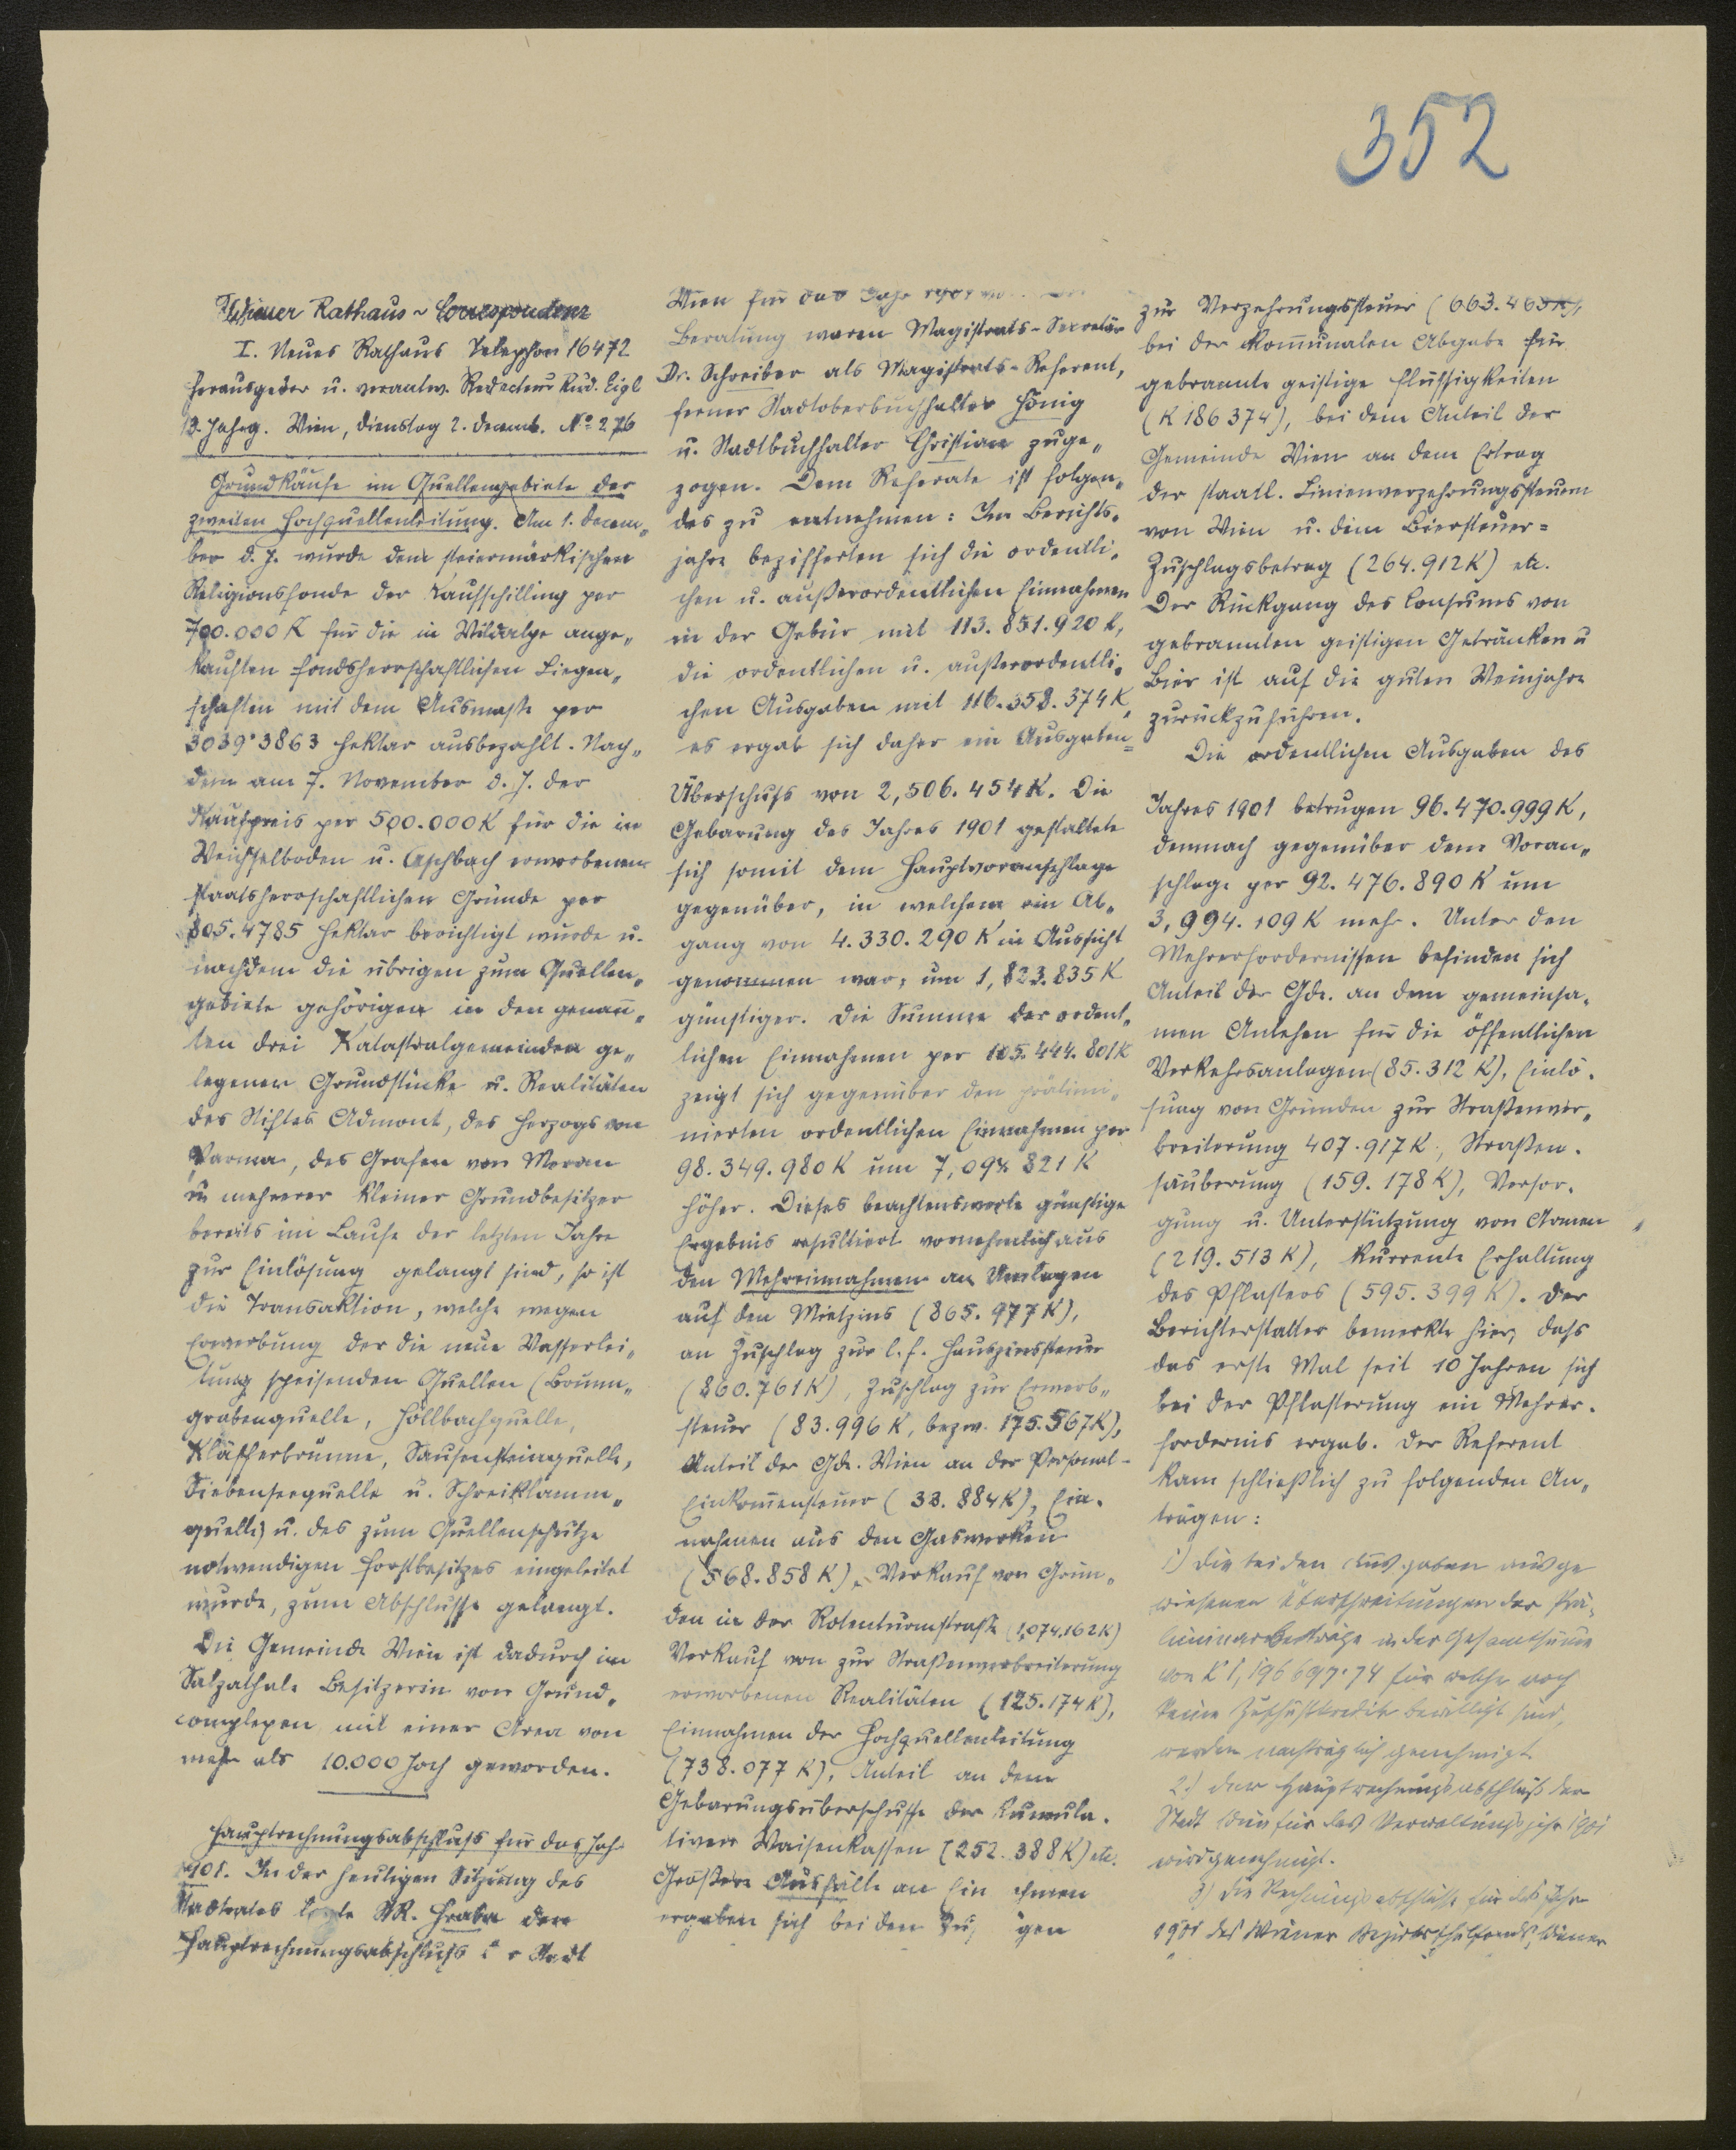 352
Wiener Rathaus-Correspondenz
I. Neues Rathaus Telephon 16472
Herausgeber u. verantw. Redacteur Rud. Eigl
12. Jahrg. Wien, Dienstag 2. Decemb. No 276
Grundkäufe im Quellengebiete der
zweiten Hochquellenleitung. Am 1. Decem„
ber d. J. wurde dem steiermärkischen
Religionsfonde der Kaufschilling per
700.000 K für die in Wildalpe ange„
kauften fondsherrschaftlichen Liegen„
schaften mit dem Ausmaße per
3039·3863 Hektar ausbezahlt. Nach„
dem am 7. November d. J. der
Kaufpreis per 500.000 K für die in
Weichselboden u. Aschbach erworbenen
staatsherrschaftlichen Gründe per
805.4785 Hektar berichtigt wurde u.
nachdem die übrigen zum Quellen„
gebiete gehörigen in den genan̄„
ten drei Katastralgemeinden ge„
legenen Grundstücke u. Realitäten
des Stiftes Admont, des Herzogs von
Parma, des Grafen von Meran
u mehrerer kleiner Grundbesitzer
bereits im Laufe der letzten Jahre
zur Einlösung gelangt sind, so ist
die Transaktion, welche wegen
Erwerbung der die neue Wasserlei„
tung speisenden Quellen (Brunn„
grabenquelle, Höllbachquelle,
Kläfferbrünne, Sausensteinquelle,
Siebenseequelle u. Schreiklamm„
quelle) u. des zum Quellenschutze
notwendigen Forstbesitzes eingeleitet
wurde, zum Abschlusse gelangt.
Die Gemeinde Wien ist dadurch im
Salzathale Besitzerin von Grund„
complexen mit einer Area von
mehr als 10.000 Joch geworden.
Hauptrechnungsabschluss für das Jahr
1901. In der heutigen Sitzung des
Stadtrates legte StR. Hraba den
Hauptrechnungsabschluss der Stadt
Wien für das Jahr 1901 vor.
Beratung waren Magistrats-Secretär
Dr. Schreiber als Magistrats-Referent,
ferner Stadtoberbuchhalter Hönig
u. Stadtbuchhalter Christian zuge„
zogen. Dem Referate ist folgen„
des zu entnehmen: Im Berichts„
jahre bezifferten sich die ordentli„
chen u. außerordentlichen Einnahmen
in der Gebür mit 113.851.920 K,
die ordentlichen u. außerordentli„
chen Ausgaben mit 116.358.374 K,
es ergab sich daher ein Ausgaben=
Überschuss von 2,506.454 K. Die
Gebarung des Jahres 1901 gestaltete
sich somit dem Hauptvoranschlage
gegenüber, in welchem ein Ab„
gang von 4.330.290 K in Aussicht
genommen war, um 1,823.835 K
günstiger. Die Summe der ordent„
lichen Einnahmen per 105.444.801 K
zeigt sich gegenüber den prälimi„
nierten ordentlichen Einnahmen per
98.349.980 K um 7,094.821 K
höher. Dieses beachtenswerte günstige
Ergebnis resultiert vornehmlich aus
den Mehreinnahmen an Umlagen
auf den Mietzins (865.977 K),
an Zuschlag zur l.f. Hauszinssteuer
(860.761 K), Zuschlag zur Erwerb„
steuer (83.996 K, bezw. 175.567 K),
Anteil der Gde. Wien an der Personal-
Einkom̄ensteuer (33.884 K), Ein„
nahmen aus den Gaswerken
(568.858 K), Verkauf von Grün„
den in der Rotenturmstraße (1,074.162 K)
Verkauf von zur Straßenverbreiterung
erworbenen Realitäten (125.174 K),
Einnahmen der Hochquellenleitung
(738.077 K), Anteil an dem
Gebarungsüberschusse der Kumula„
tiven Waisenkassen (252.388 K) etc.
Größere Ausfälle an Ein hmen
ergaben sich bei den Zu gen
zur Verzehrungssteuer (663.463 K),
bei der kom̄unalen Abgabe für
gebrannte geistige Flüssigkeiten
(K 186 374), bei dem Anteil der
Gemeinde Wien an dem Ertrag
der staatl. Linienverzehrungssteuern
von Wien u. dem Biersteuer=
Zuschlagsbetrag (264.912 K) etc.
Der Rückgang des Consums von
gebrannten geistigen Getränken u
Bier ist auf die guten Weinjahre
zurückzuführen.
Die ordentlichen Ausgaben des
Jahres 1901 betrugen 96.470.999 K,
demnach gegenüber dem Voran„
schlage per 92.476.890 K um
3,994.109 K mehr. Unter den
Mehrerfordernissen befinden sich
Anteil der Gde. an dem gemeinsa„
men Anlehen für die öffentlichen
Verkehrsanlagen (85.312 K), Einlö„
sung von Gründen zur Straßenver„
breiterung 407.917 K, Straßen„
säuberung (159.178 K), Versor„
gung u. Unterstützung von Armen
(219.513 K), kurrente Erhaltung
des Pflasters (595.399 K). Der
Berichterstatter bemerkte hier, dass
das erste Mal seit 10 Jahren sich
bei der Pflasterung ein Mehrer„
fordernis ergab. Der Referent
kam schließlich zu folgenden An„
trägen:
1.) Die bei den Ausgaben ausge
wiesenen Überschreitungen der Prä„
liminarbeträge in der Gesamtsume
von K 1,196 697·74 für welche noch
keine Zuschußkredite bewilligt sind,
werden nachträglich genehmigt
2.) Der Hauptrechnungsabschluß der
Stadt Wien für das Verwaltungsjahr 1901
wird genehmigt.
3.) Die Rechnungsabschlüsse für das Jahr
1901 des Wiener Bezirksschulfonds, Wiener